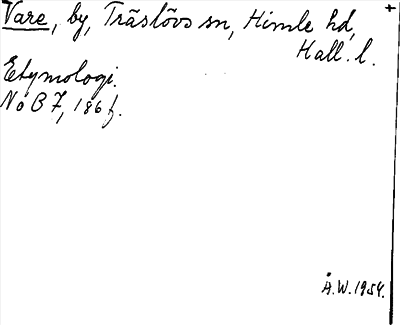 Vare, by, Träslövs sn, Himle hd,
Hall. l.
Etymologi.
NoB 7, 186 f.
Å.W. 1954.